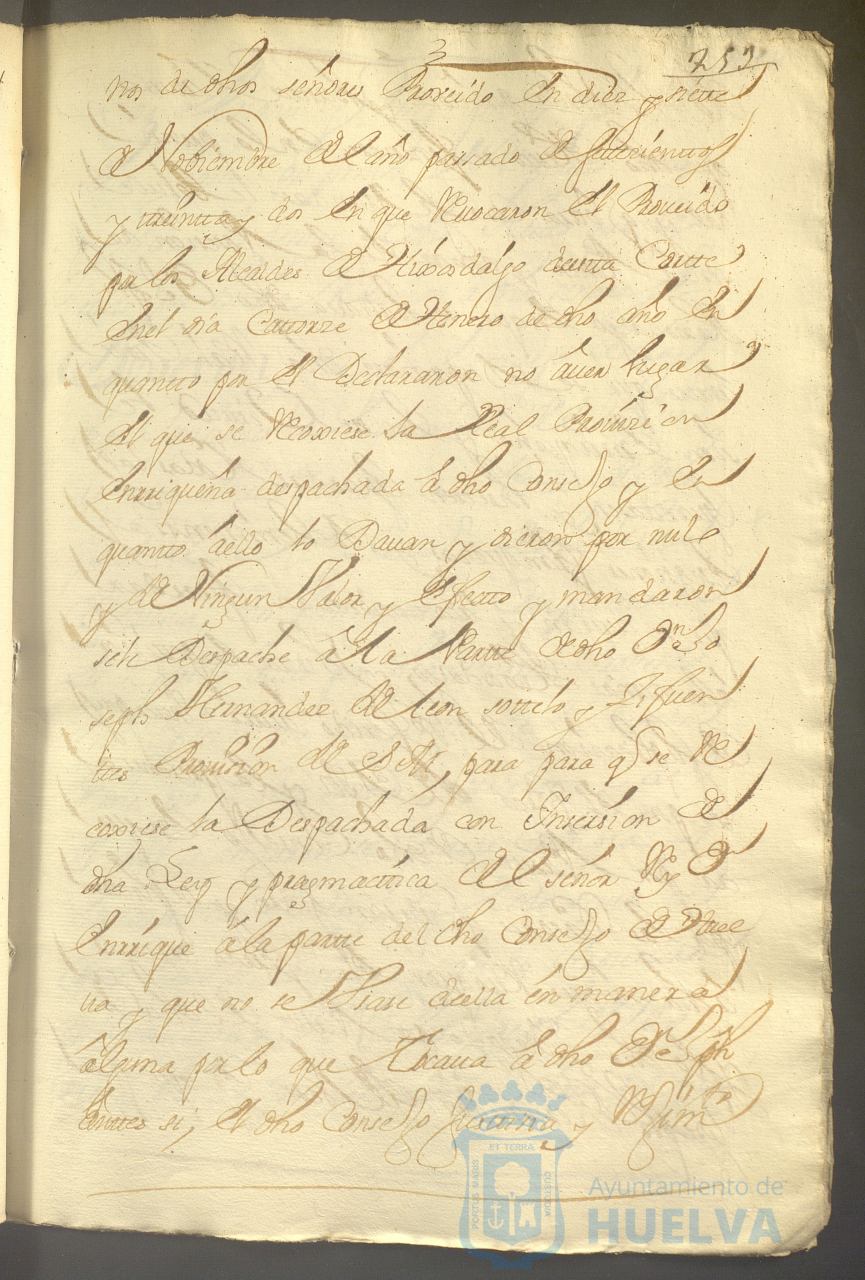 3 253
nos de dhos señores Proveido en diez y siette
de Nobiembre del año passado de settecienttos
y treintta y dos en que Revocaron el Proveido
por los Alcaldes de Hixosdalgo de esta Cortte
en el dia Cattorze de Henero de dho año en
quantto por el Declararon no aver lugar
el que se Recoxiese la Real Provizion
enrriqueña despachada â dho Consejo y en
quantto âello lo Davan y dieron por nulo
y de Ningun Valor y Efectto y mandaron
sele Despache â la Partte de dho Dn Jo
seph Hernandez de leon sottelo y Zifuen
ttes Provision de S. A., para para q se Re
coxiese la Despachada con Inserzion de
dha Ley y pracmattica del señor Rey Dn
Enrrique â la partte del dho Consejo de Huel
va y que no se Usase de ella en manera
âlguna por lo que Tocava â dho Dn Jph
Enttes si, el dho Consejo Justtizia y Rejimto
PORTUS MARIS
ET TERRÆ
CUSTODIA
Ayuntamiento de
HUELVA